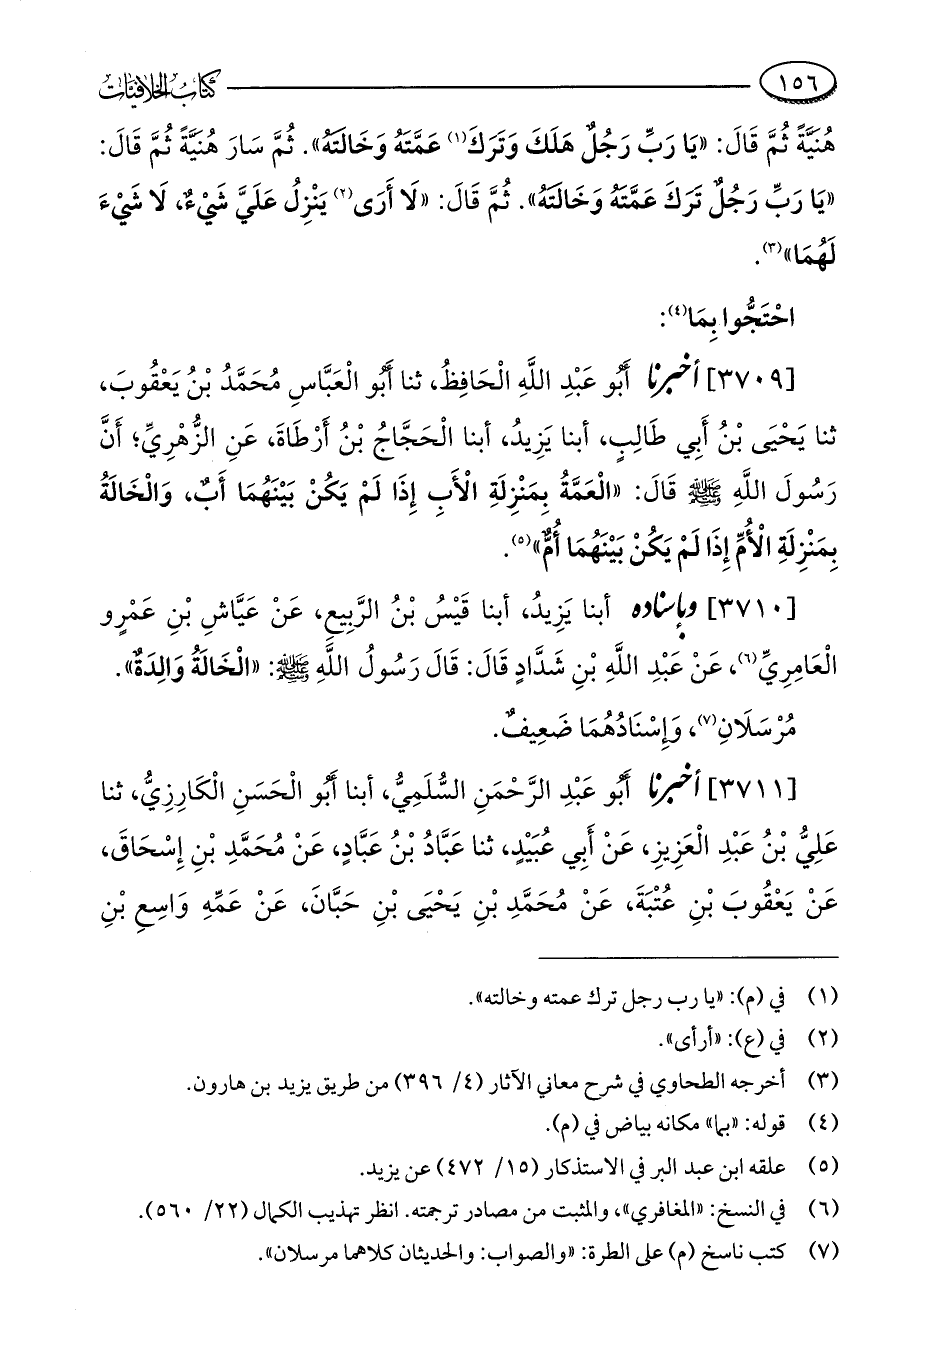 ١٥٦ كتاب الخلافيات
هُنَيَّةً ثُمَّ قَالَ: «يَا رَبِّ رَجُلٌ هَلَكَ وَتَرَكَ(١) عَمَّتَهُ وَخَالَتَهُ». ثُمَّ سَارَ هُنَيَّةً ثُمَّ قَالَ:
«يَا رَبِّ رَجُلٌ تَرَكَ عَمَّتَهُ وَخَالَتَهُ». ثُمَّ قَالَ: «لَا أَرَى(٢) يَنْزِلُ عَلَيَّ شَيْءٌ، لَا شَيْءَ
لَهُمَا»(٣).
احْتَجُّوا بِمَا(٤):
[٣٧٠٩] أخبرنا أَبُو عَبْدِ اللَّهِ الْحَافِظُ، ثنا أَبُو الْعَبَّاسِ مُحَمَّدُ بْنُ يَعْقُوبَ،
ثنا يَحْيَى بْنُ أَبِي طَالِبٍ، أبنا يَزِيدُ، أبنا الْحَجَّاجُ بْنُ أَرْطَاةَ، عَنِ الزُّهْرِيِّ؛ أَنَّ
رَسُولَ اللَّهِ ﷺ قَالَ: «الْعَمَّةُ بِمَنْزِلَةِ الْأَبِ إِذَا لَمْ يَكُنْ بَيْنَهُمَا أَبٌ، وَالْخَالَةُ
بِمَنْزِلَةِ الْأُمِّ إِذَا لَمْ يَكُنْ بَيْنَهُمَا أُمٌّ»(٥).
[٣٧١٠] وبإسناده أبنا يَزِيدُ، أبنا قَيْسُ بْنُ الرَّبِيعِ، عَنْ عَيَّاشِ بْنِ عَمْرٍو
الْعَامِرِيِّ(٦)، عَنْ عَبْدِ اللَّهِ بْنِ شَدَّادٍ قَالَ: قَالَ رَسُولُ اللَّهِ ﷺ: «الْخَالَةُ وَالِدَةٌ».
مُرْسَلَانِ(٧)، وَإِسْنَادُهُمَا ضَعِيفٌ.
[٣٧١١] أخبرنا أَبُو عَبْدِ الرَّحْمَنِ السُّلَمِيُّ، أبنا أَبُو الْحَسَنِ الْكَارِزِيُّ، ثنا
عَلِيُّ بْنُ عَبْدِ الْعَزِيزِ، عَنْ أَبِي عُبَيْدٍ، ثنا عَبَّادُ بْنُ عَبَّادٍ، عَنْ مُحَمَّدِ بْنِ إِسْحَاقَ،
عَنْ يَعْقُوبَ بْنِ عُتْبَةَ، عَنْ مُحَمَّدِ بْنِ يَحْيَى بْنِ حَبَّانَ، عَنْ عَمِّهِ وَاسِعِ بْنِ
(١) في (م): «يا رب رجل ترك عمته وخالته».
(٢) في (ع): «أرأى».
(٣) أخرجه الطحاوي في شرح معاني الآثار (٤/ ٣٩٦) من طريق يزيد بن هارون.
(٤) قوله: «بما» مكانه بياض في (م).
(٥) علقه ابن عبد البر في الاستذكار (١٥/ ٤٧٢) عن يزيد.
(٦) في النسخ: «المغافري»، والمثبت من مصادر ترجمته. انظر تهذيب الكمال (٢٢/ ٥٦٠).
(٧) كتب ناسخ (م) على الطرة: «والصواب: والحديثان كلاهما مرسلان».